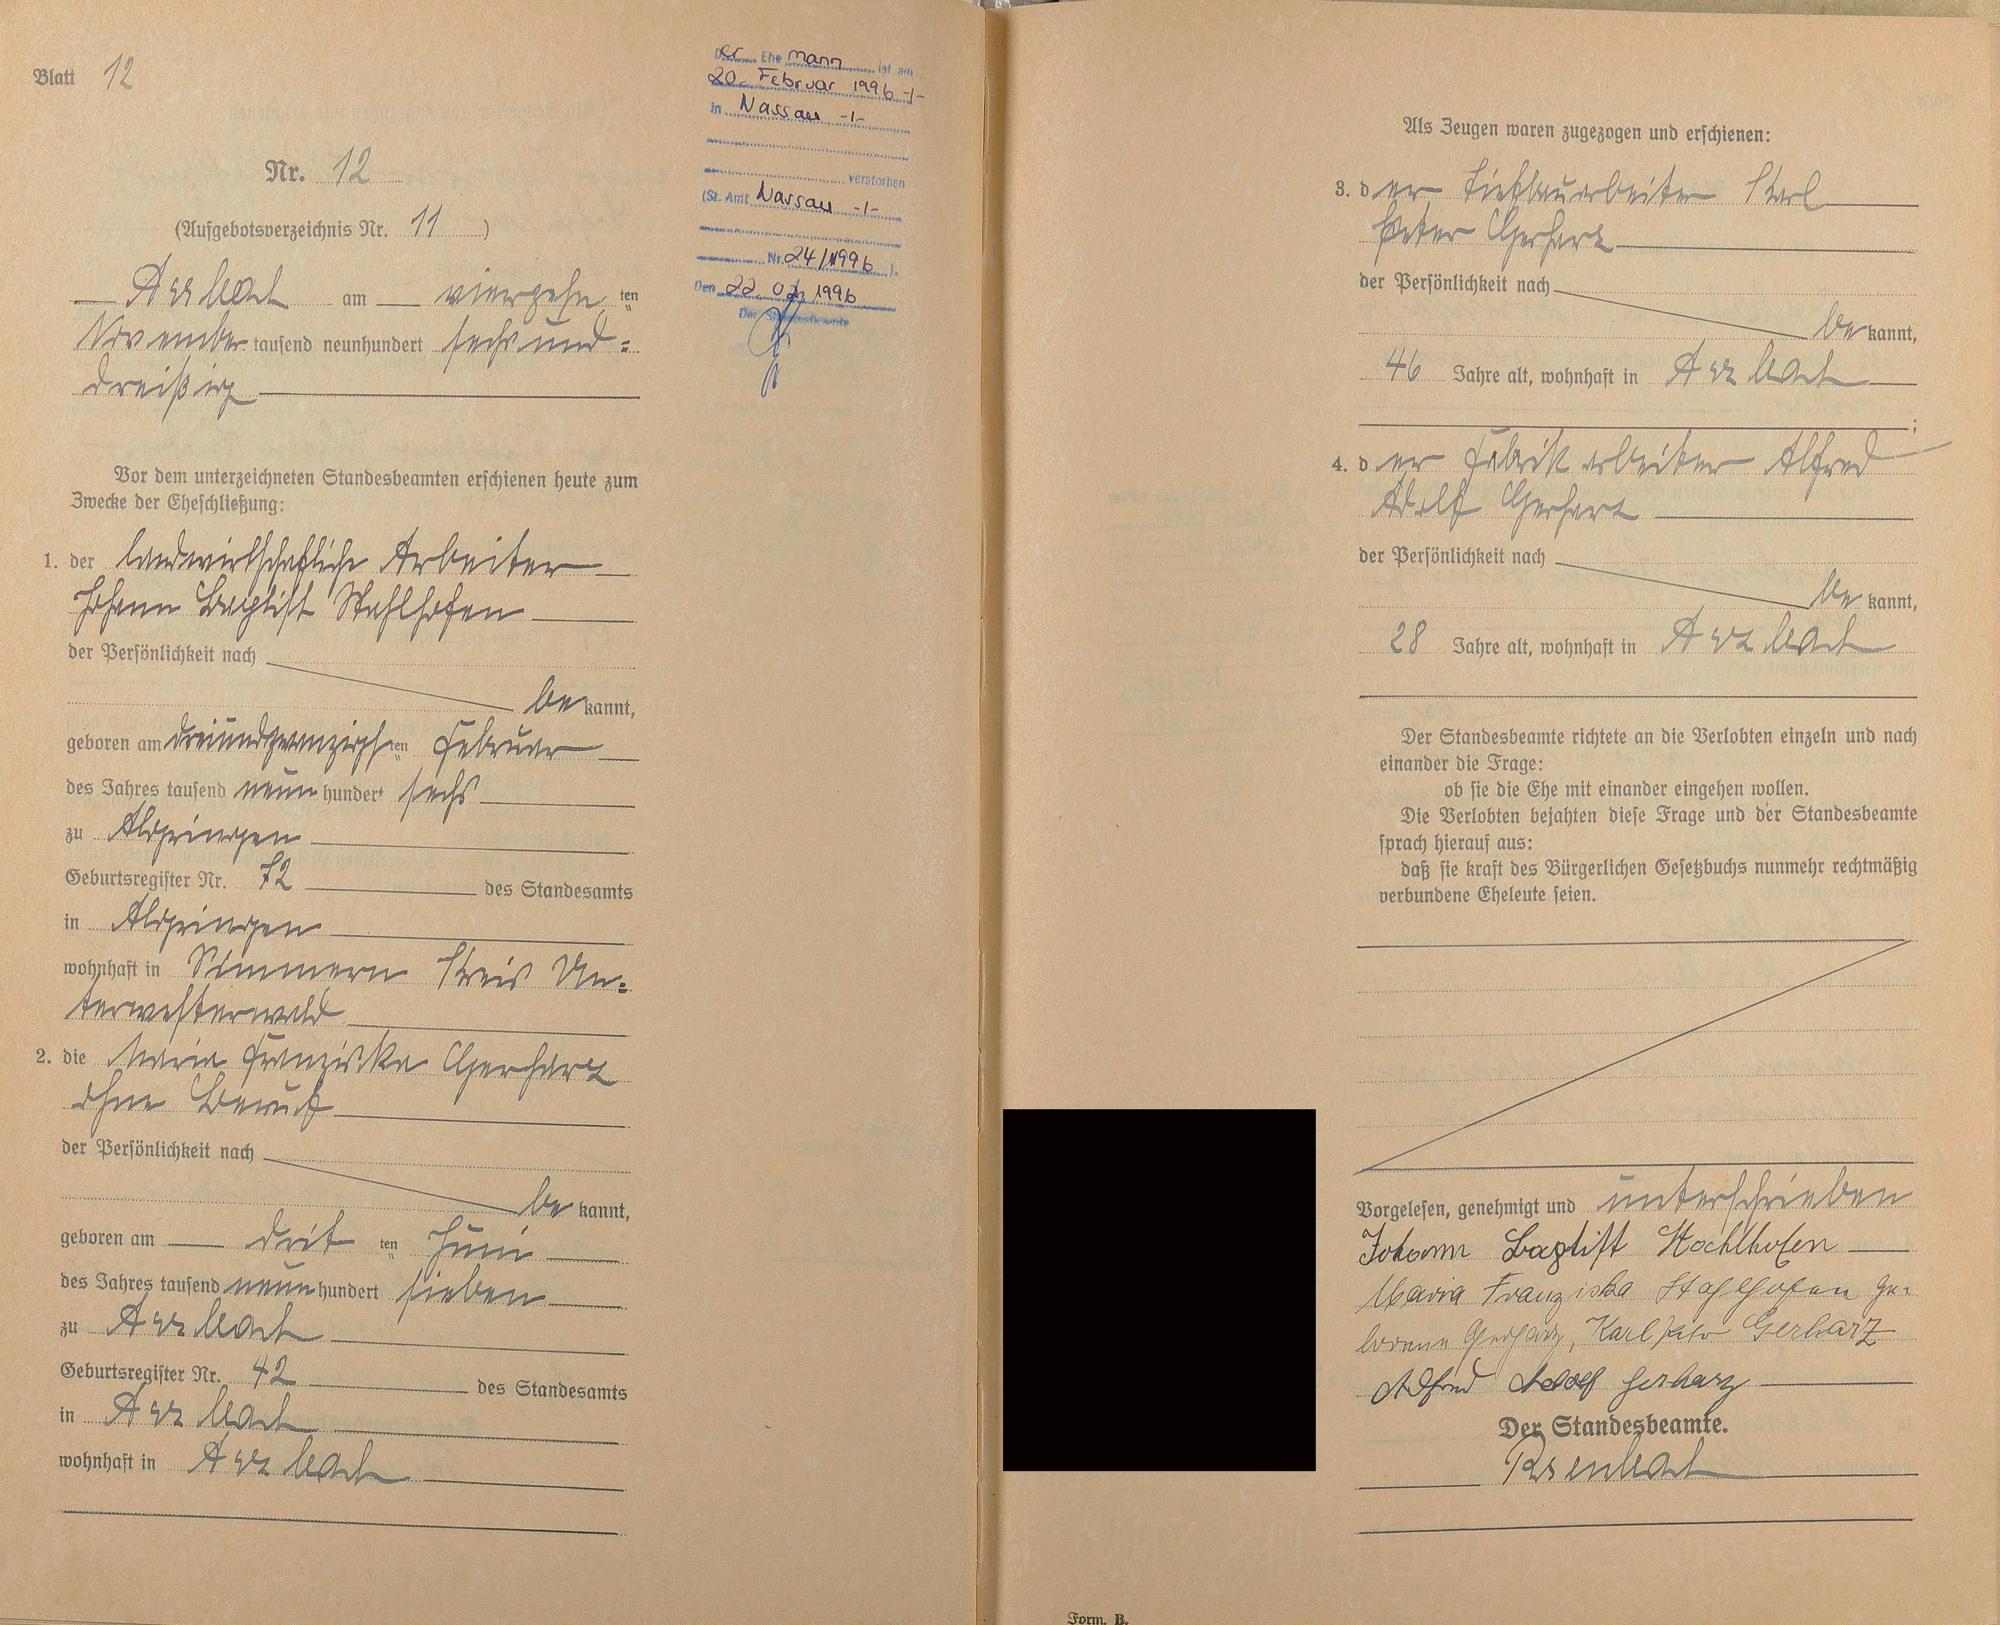 Blatt 12
Nr. 12
(Aufgebotsverzeichnis Nr. 11 )
Arzbach am vierzehnten
November tausend neunhundert sechsund=
dreißig
Vor dem unterzeichneten Standesbeamten erschienen heute zum
Zwecke der Eheschließung:
1. der landwirtschaftliche Arbeiter
Johann Baptist Stahlhofen
der Persönlichkeit nach
bekannt,
geboren am dreiundzwanzigsten Februar
des Jahres tausend neunhundert sechs
zu
Geburtsregister Nr. 72 des Standesamts
in
wohnhaft in Simmern Kreis Un=
terwesterwald
2. die Maria Franziska Gerharz
ohne Beruf
der Persönlichkeit nach
bekannt,
geboren am dritten Juni
des Jahres tausend neunhundert sieben
zu Arzbach
Geburtsregister Nr. 42 des Standesamts
in Arzbach
wohnhaft in Arzbach
Der Ehemann ist am
20. Februar 1996 -/-
in Nassau -/-
verstorben
(St. Amt Nassau -/-
Nr. 24/1996 ).
Den 22. 02. 1996
Der Standesbeamte
Als Zeugen waren zugezogen und erschienen:
3. der Tiefbauarbeiter Karl
Peter Gerharz
der Persönlichkeit nach
bekannt,
46 Jahre alt, wohnhaft in Arzbach
;
4. der Fabrikarbeiter Alfred
Adolf Gerharz
der Persönlichkeit nach
bekannt,
28 Jahre alt, wohnhaft in Arzbach
Der Standesbeamte richtete an die Verlobten einzeln und nach
einander die Frage:
ob sie die Ehe mit einander eingehen wollen.
Die Verlobten bejahten diese Frage und der Standesbeamte
sprach hierauf aus:
daß sie kraft des Bürgerlichen Gesetzbuchs nunmehr rechtmäßig
verbundene Eheleute seien.
Vorgelesen, genehmigt und unterschrieben
Johann Baptist Stahlhofen
Maria Franziska Stahlhofen ge-
borene Gerharz, Karl Peter Gerharz
Alfred Adolf Gerharz
Der Standesbeamte.
Form. B.